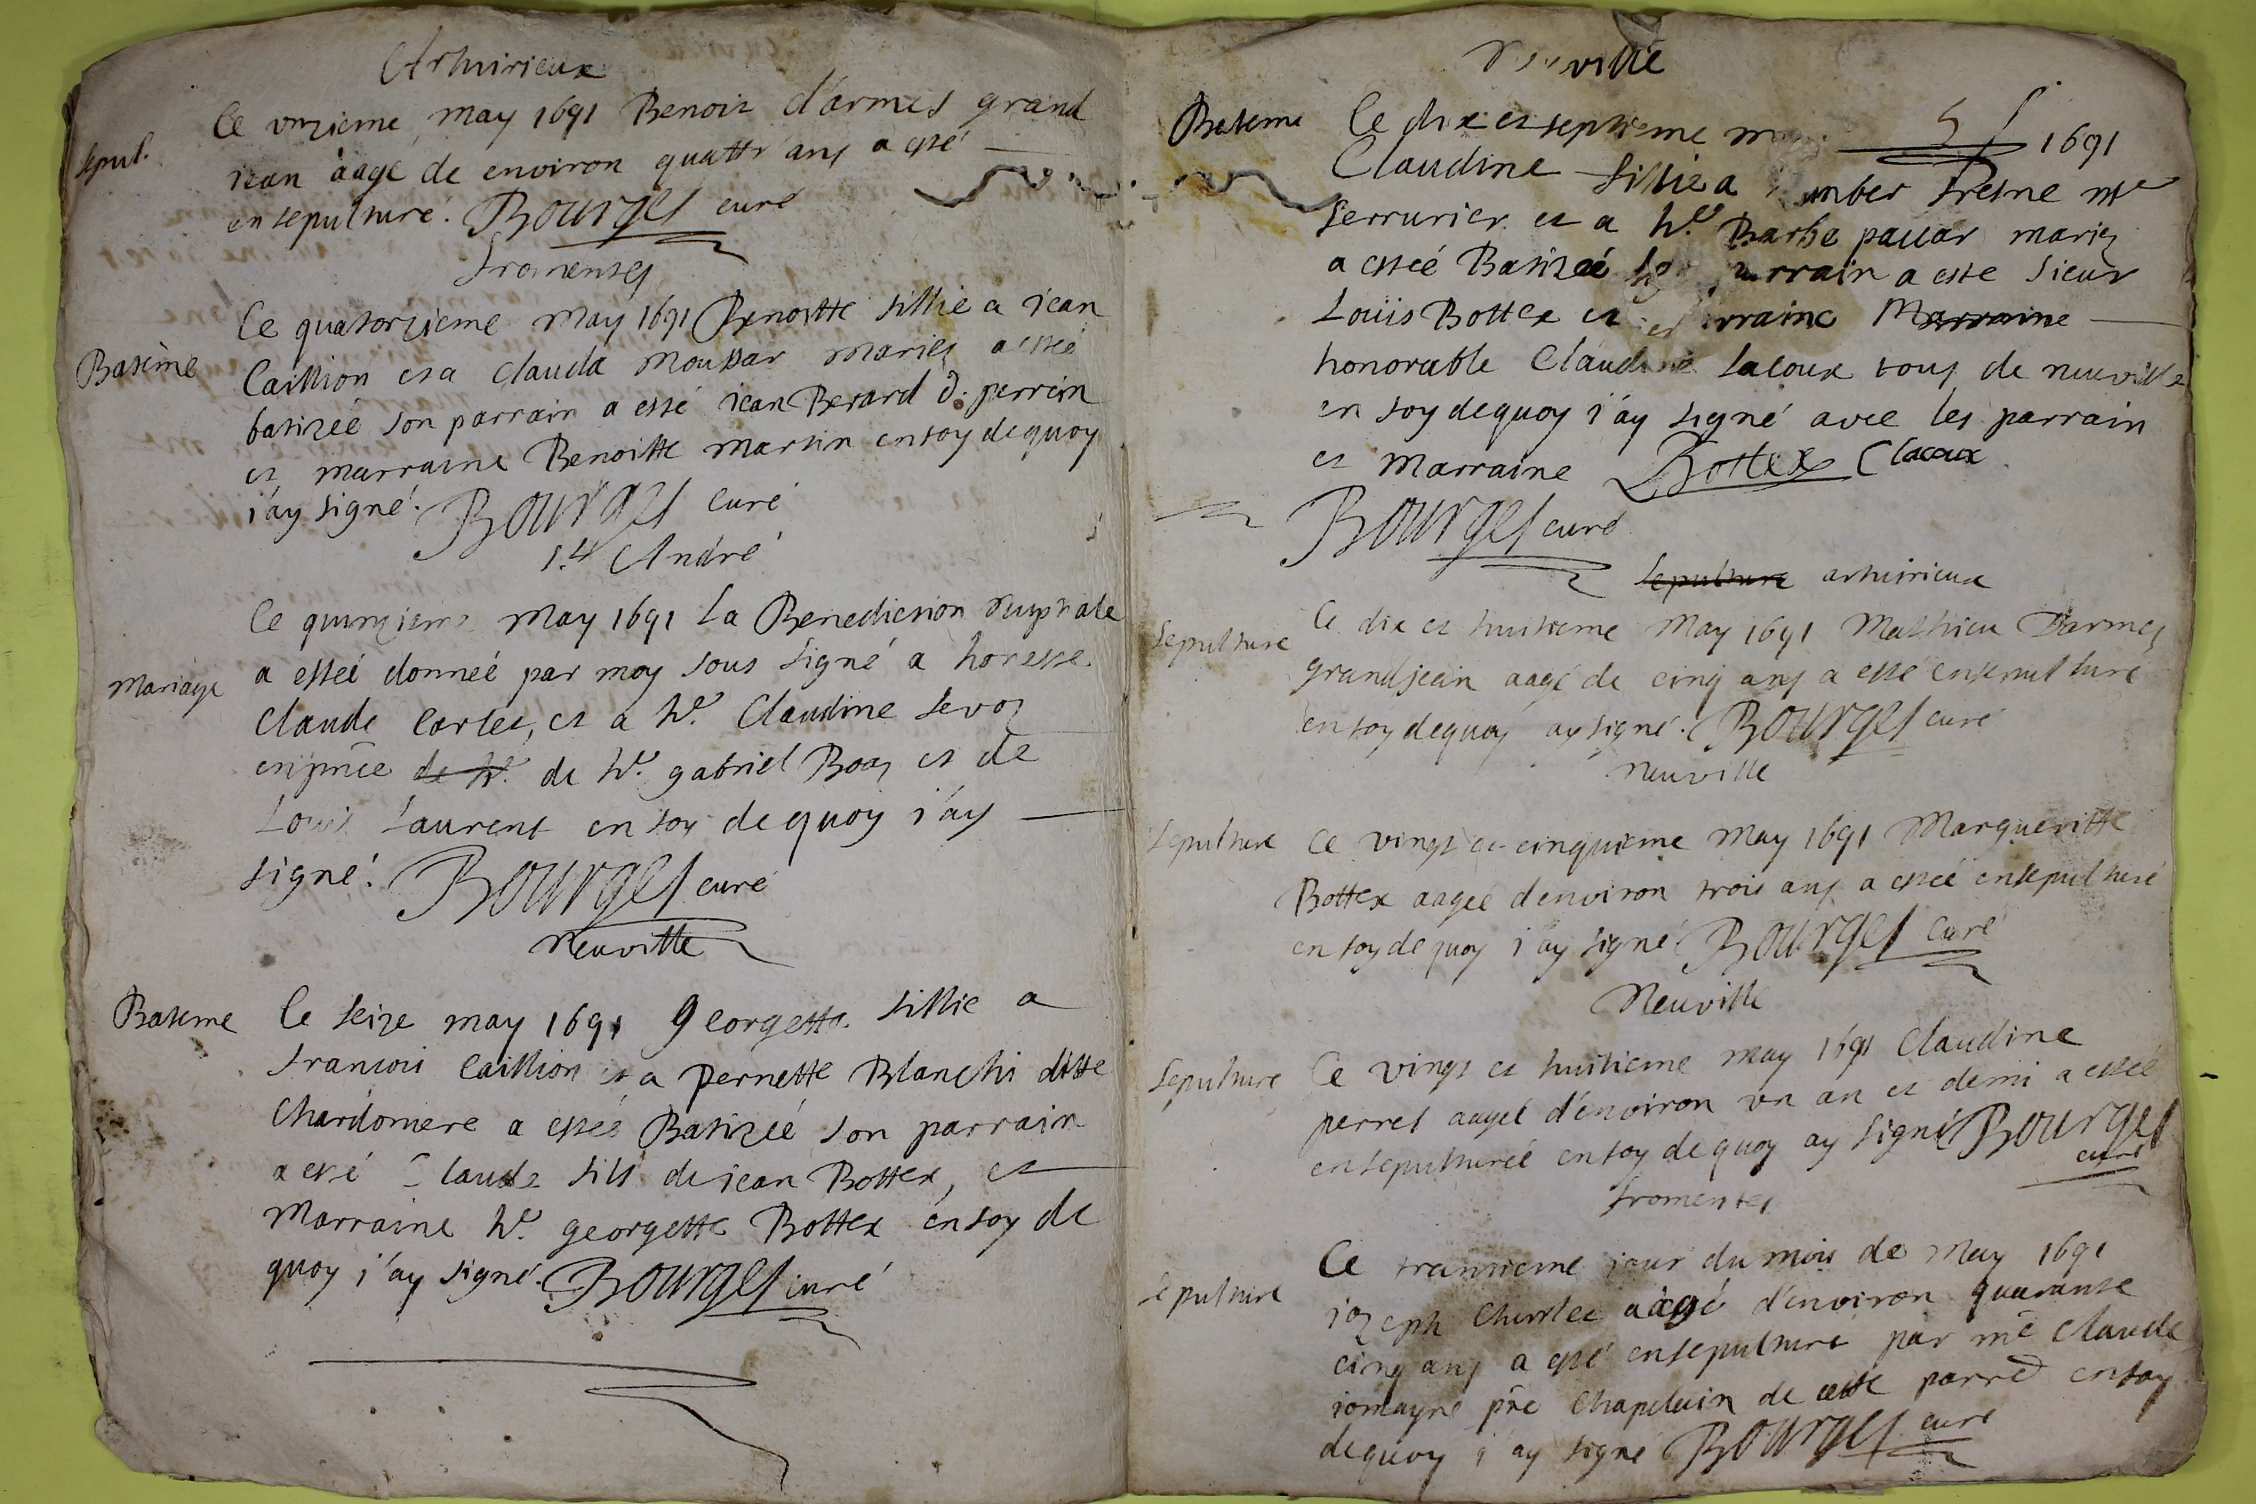 Arthuirieux
Sepul.
Ce vnzieme may 1691 Benoit d'armes grand
iean aagé de environ quattr' ans a esté
ensepulturé. Bourges curé
fromentes
Bateme
Ce quatorzieme may 1691 Benoitte fillie a iean
Caillion et a Clauda moussar mariez a esteé
batizeé son parrain a esté iean Berard d. perrein
et marraine Benoitte martin en foy de quoy
i'ay signé. Bourges curé
St André
Mariage
Ce quinzieme may 1691 La Benediction nuptiale
a esteé donneé par moy sous signé a honeste
Claude Cortet, et a he. Claudine sevoz
en pnce de he. de he. gabriel Boaz et de
Louis Laurent en foy de quoy i'ay
signé. Bourges curé
Neuville
Bateme
Ce seize may 1691 Georgette fillie a
francois Caillion et a Pernette Blanchi ditte
Chardonnere a esteé Batizeé son parrain
a esté Claude fils de iean Bottex, et
Marraine he. georgette Bottex en foy de
quoy i'ay signé. Bourges curé
Neuville
Bateme
Ce dix et septieme 1691
Claudine fillie a fresne me
serrurier et a he. Barbe paccar mariez
a esteé Batizeé parrain a esté sieur
Louis Bottex et marraine Marraine
honorable Claudine Lacoux tous de neuville
en foy de quoy i'ay signé avec les parrain
et Marraine Bottex C lacoux
Bourges curé
Sepulture arthuirieux
Sepulture
Ce dix et huitieme May 1691 Mathieu Darmes
grandjean aagé de cinq ans a esté ensepulturé
en foy de quoy ay signé. Bourges curé
Neuville
Sepulture
Ce vingt et cinquieme May 1691 Margueritte
Bottex aageé d'environ trois ans a esteé ensepulturé
en foy de quoy i'ay signé Bourges Curé
Neuville
Sepulture
Ce vingt et huitieme may 1691 Claudine
perret aageé d'environ vn an et demi a esteé
ensepultureé en foy de quoy ay signé Bourges
curé
fromentes
Sepulture
Ce trantieme jour du mois de May 1691
iozeph aagé d'environ quarante
cinq ans a esté ensepulturé par mre Claude
iomayne pre Chapelain de cette parre en foy
de quoy i'ay signé Bourges curé